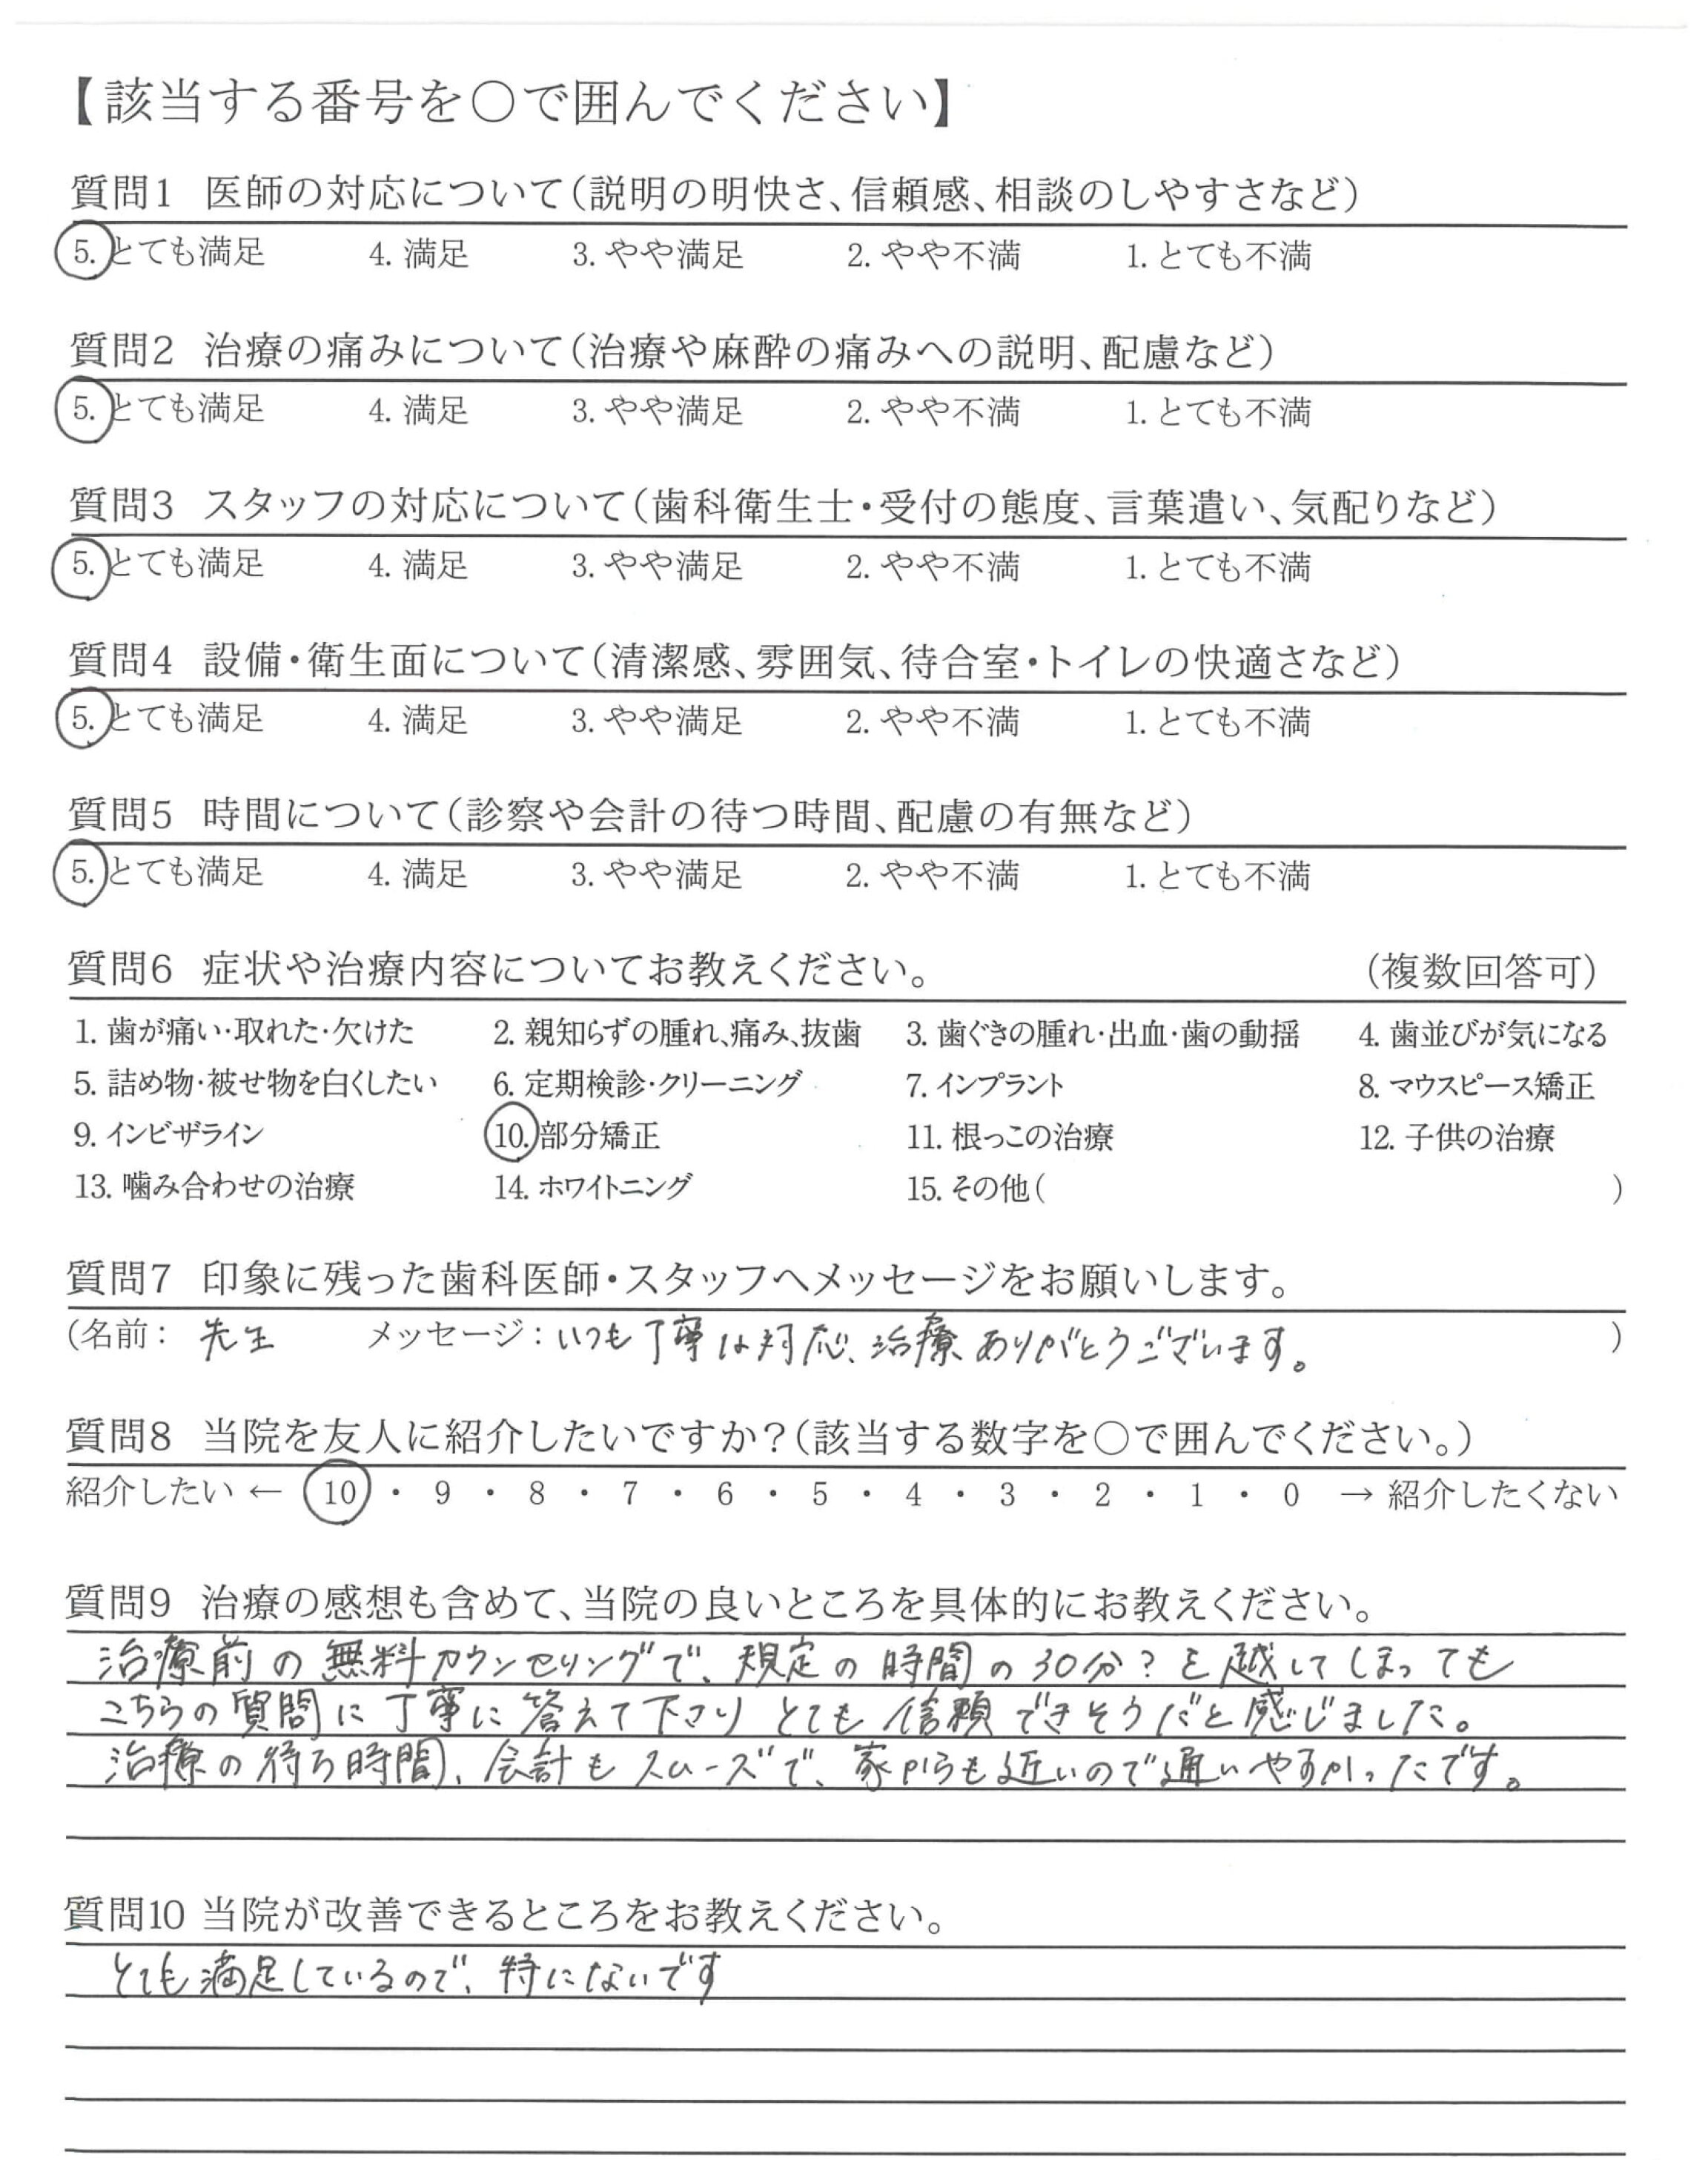 【該当する番号を〇で囲んでください】
質問1 医師の対応について(説明の明快さ、信頼感、相談のしやすさなど)
5. とても満足 4. 満足 3. やや満足 2. やや不満 1. とても不満
質問2 治療の痛みについて(治療や麻酔の痛みへの説明、配慮など)
5. とても満足 4. 満足 3. やや満足 2. やや不満 1. とても不満
質問3 スタッフの対応について(歯科衛生士・受付の態度、言葉遣い、気配りなど)
5. とても満足 4. 満足 3. やや満足 2. やや不満 1. とても不満
質問4 設備・衛生面について(清潔感、雰囲気、待合室・トイレの快適さなど)
5. とても満足 4. 満足 3. やや満足 2. やや不満 1. とても不満
質問5 時間について(診察や会計の待つ時間、配慮の有無など)
5. とても満足 4. 満足 3. やや満足 2. やや不満 1. とても不満
質問6 症状や治療内容についてお教えください。 (複数回答可)
1. 歯が痛い・取れた・欠けた 2. 親知らずの腫れ、痛み、抜歯 3. 歯ぐきの腫れ・出血・歯の動揺 4. 歯並びが気になる
5. 詰め物・被せ物を白くしたい 6. 定期検診・クリーニング 7. インプラント 8. マウスピース矯正
9. インビザライン 10. 部分矯正 11. 根っこの治療 12. 子供の治療
13. 噛み合わせの治療 14. ホワイトニング 15. その他( )
質問7 印象に残った歯科医師・スタッフへメッセージをお願いします。
(名前： 先生 メッセージ：いつも丁寧な対応、治療ありがとうございます。 )
質問8 当院を友人に紹介したいですか？(該当する数字を〇で囲んでください。)
紹介したい ← 10 ・ 9 ・ 8 ・ 7 ・ 6 ・ 5 ・ 4 ・ 3 ・ 2 ・ 1 ・ 0 → 紹介したくない
質問9 治療の感想も含めて、当院の良いところを具体的にお教えください。
治療前の無料カウンセリングで、規定の時間の30分？を越してしまっても
こちらの質問に丁寧に答えて下さりとても信頼できそうだと感じました。
治療の待ち時間、会計もスムーズで、家からも近いので通いやすかったです。
質問10 当院が改善できるところをお教えください。
とても満足しているので、特にないです